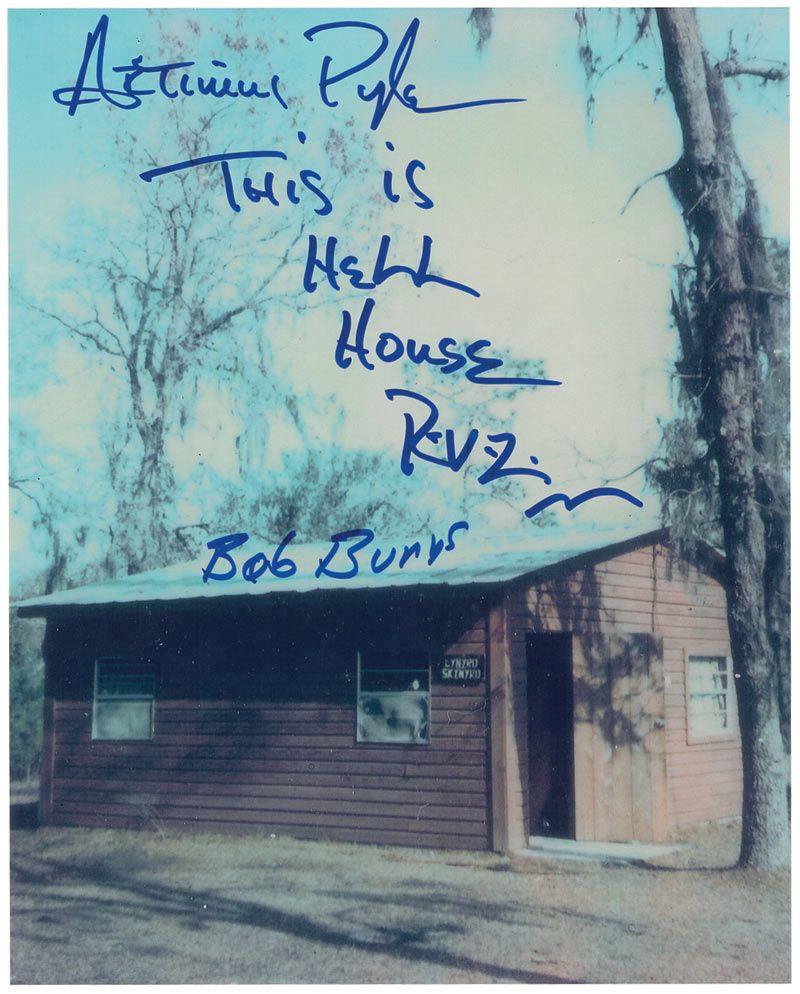 Artimus Pyle
THis is
HELL
HOUSE
R.V.Z.
Bob Burns
LYNYRD
SKYNYRD